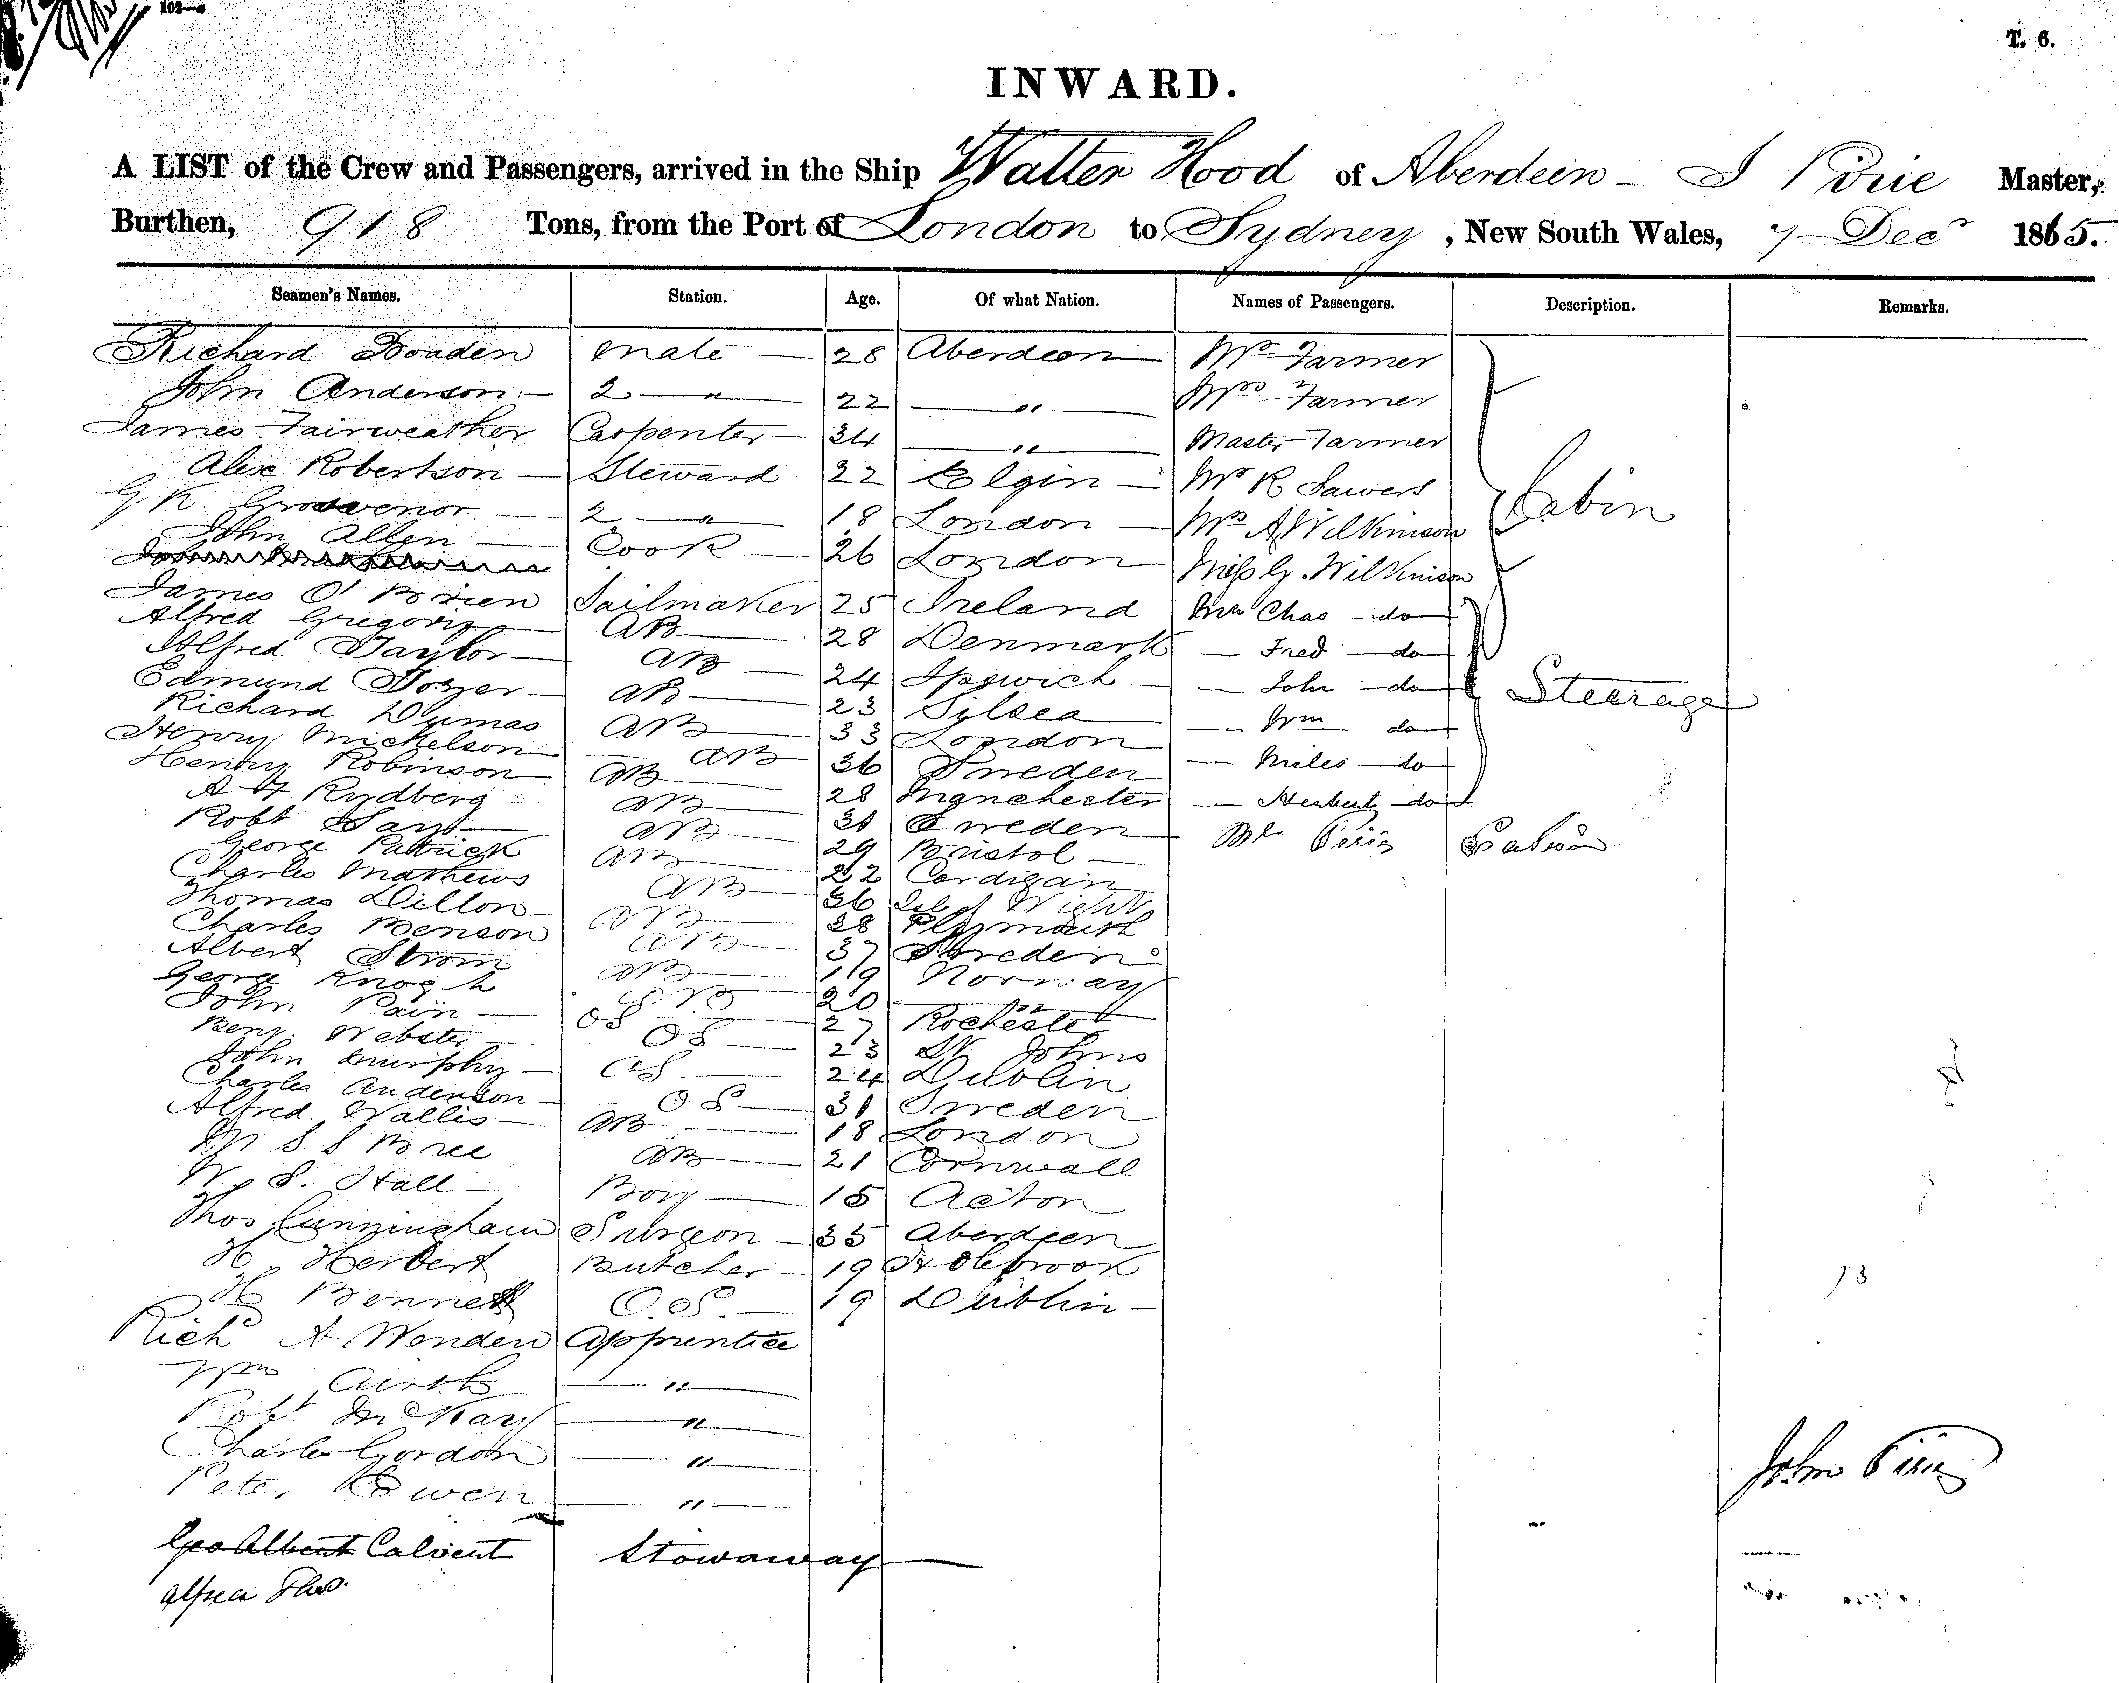 T. 6.
INWARD.
A LIST of the Crew and Passengers, arrived in the Ship Walter Hood of Aberdeen - J Pirie Master,
Burthen, 918 Tons, from the Port of London to Sydney, New South Wales, 7 Decr 1865.
Seamen's Names. Station. Age. Of what Nation. Names of Passengers. Description. Remarks.
Richard Boaden mate 28 Aberdeen Mr Farmer
John Anderson 2 " 22 " Mrs Farmer
James Fairweather Carpenter 34 " Master Farmer
Alex Robertson Steward 22 Elgin Mr R Sawers Cabin
G K Grosvenor 2 " 18 London Mrs A Wilkinson
John Allen Cook 26 London Miss G. Wilkinson
James O'Brien Sailmaker 25 Ireland Chas do
Alfred Gregory AB 28 Denmark Fred do
Alfred Taylor AB 24 Ipswich John do Steerage
Edmund AB 23 Wm do
Richard Dumas AB 33 London Miles do
Henry Mickelson AB 36 Sweden Herbert do
Henry Robinson AB 28 Manchester Mr Pirie Cabin
A H Rydberg AB 31 Sweden
Robt AB 29 Bristol
George Patrick AB 22 Cardigan
Charles Mathews AB 36 Isle of Wight
Thomas Dillon AB 28 Plymouth
Charles Benson AB 37 Sweden
Albert Strom AB 19 Norway
George 20
John Pain OS 27 Rochester
Benj. Webster OS 23 St Johns
John Murphy OS 24 Dublin
Charles Anderson OS 31 Sweden
Alfred Wallis AB 18 London
M S S Bree AB 21 Cornwall
W. S. Hall Boy 15 Acton
Thos Cunningham Surgeon 35 Aberdeen
H. Herbert Butcher 19 Holebrook
H Bennett O.S. 19 Dublin
Richd A Wonden Apprentice
Wm Airth "
Robt McKay "
Charles Gordon "
Peter Owen "
John Pirie
Geo Albert Calvert Stowaway